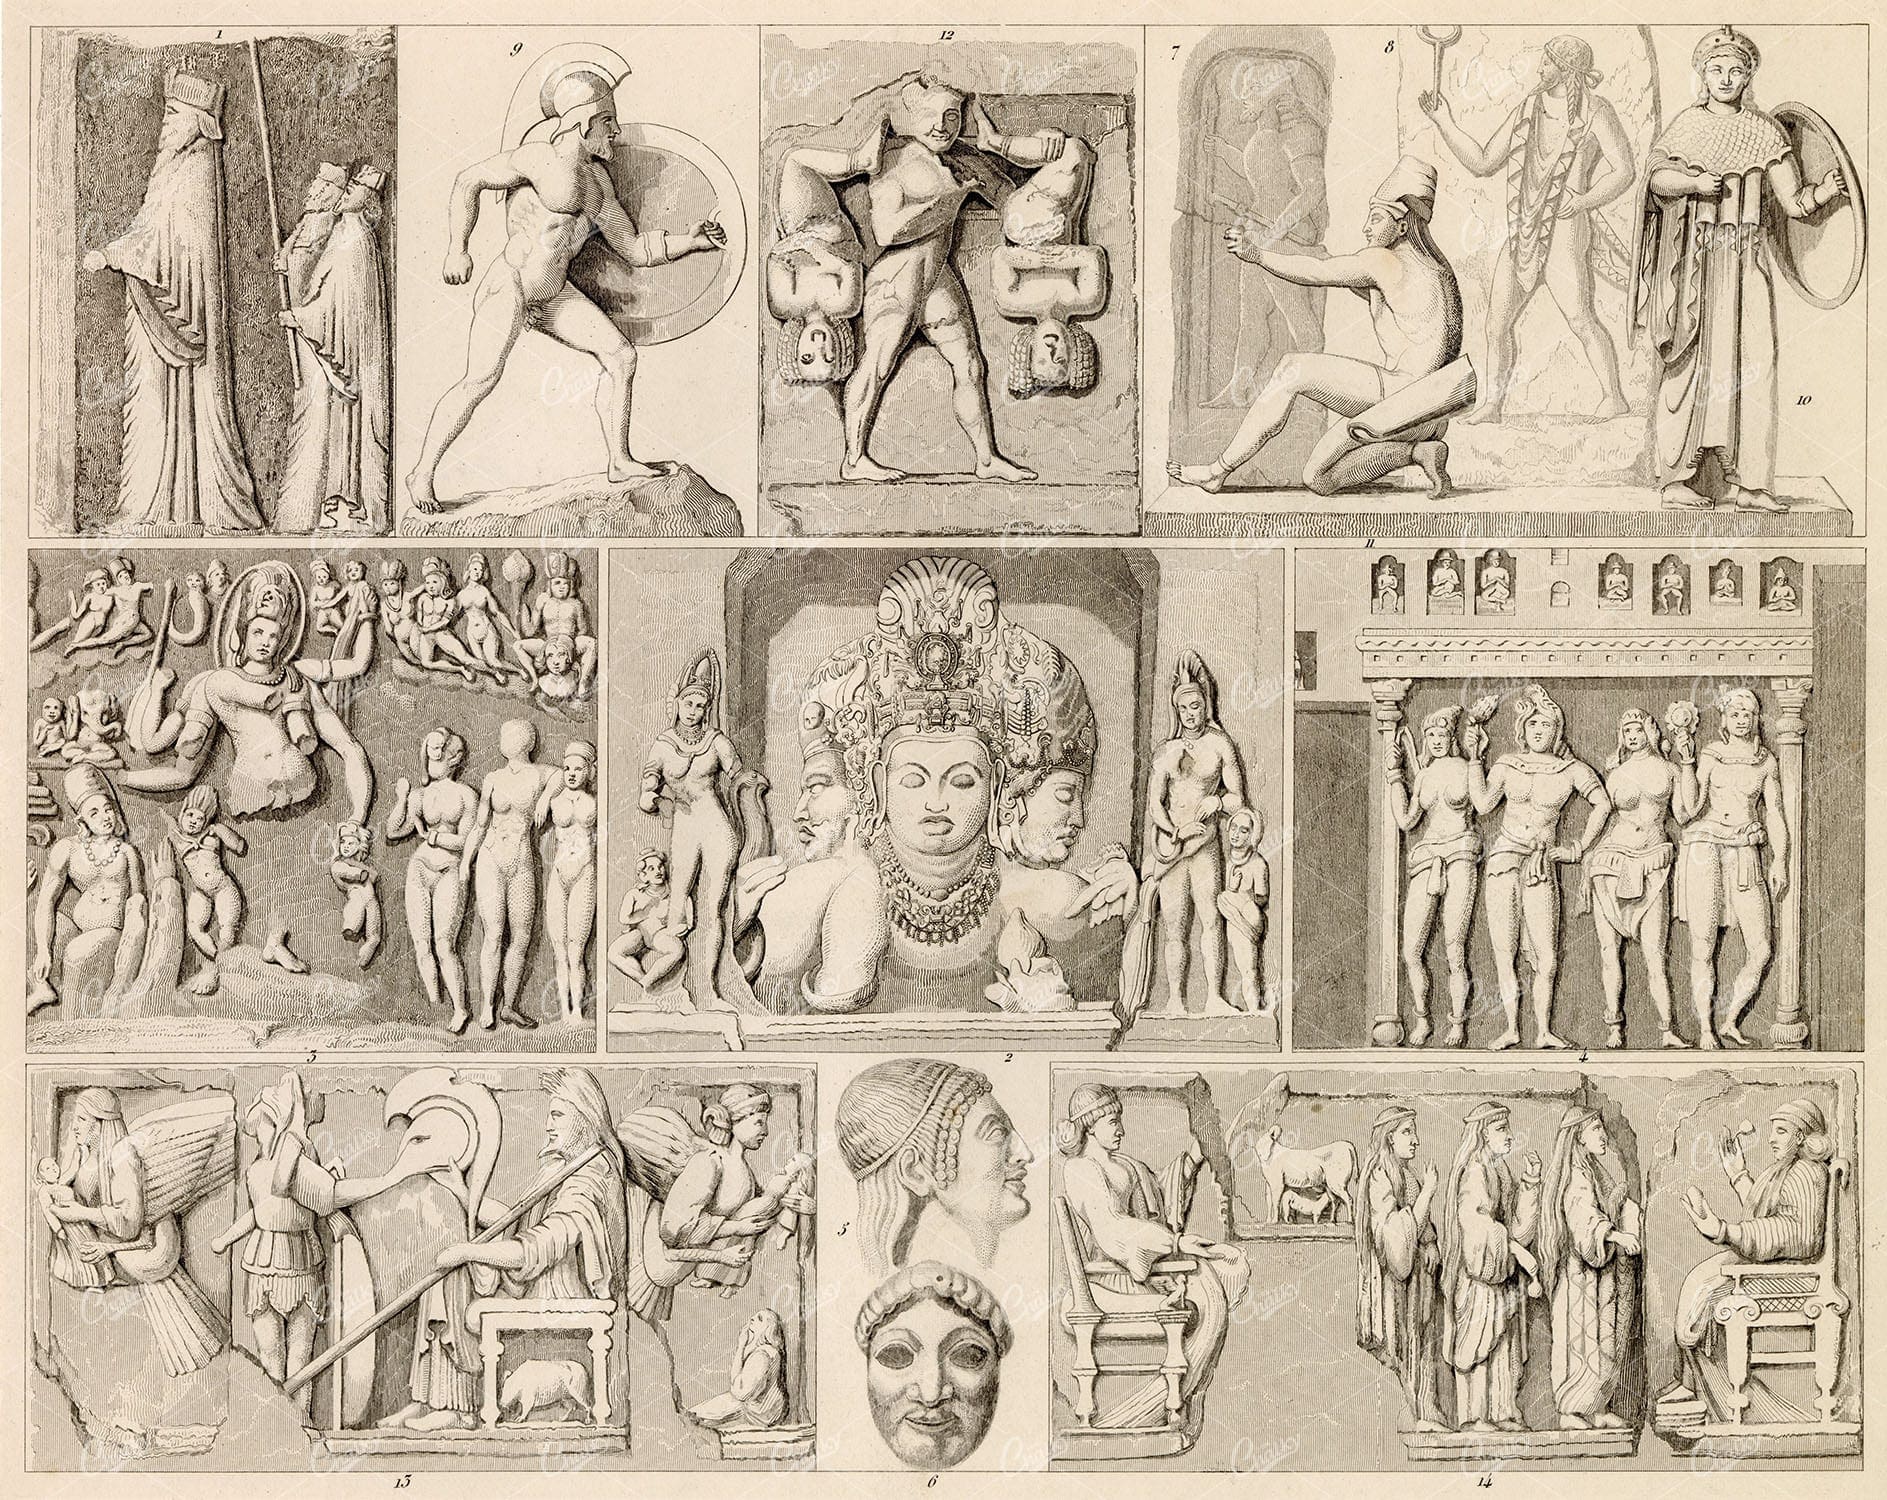 1
9
12
7
8
10
11
3
2
4
5
13
6
14